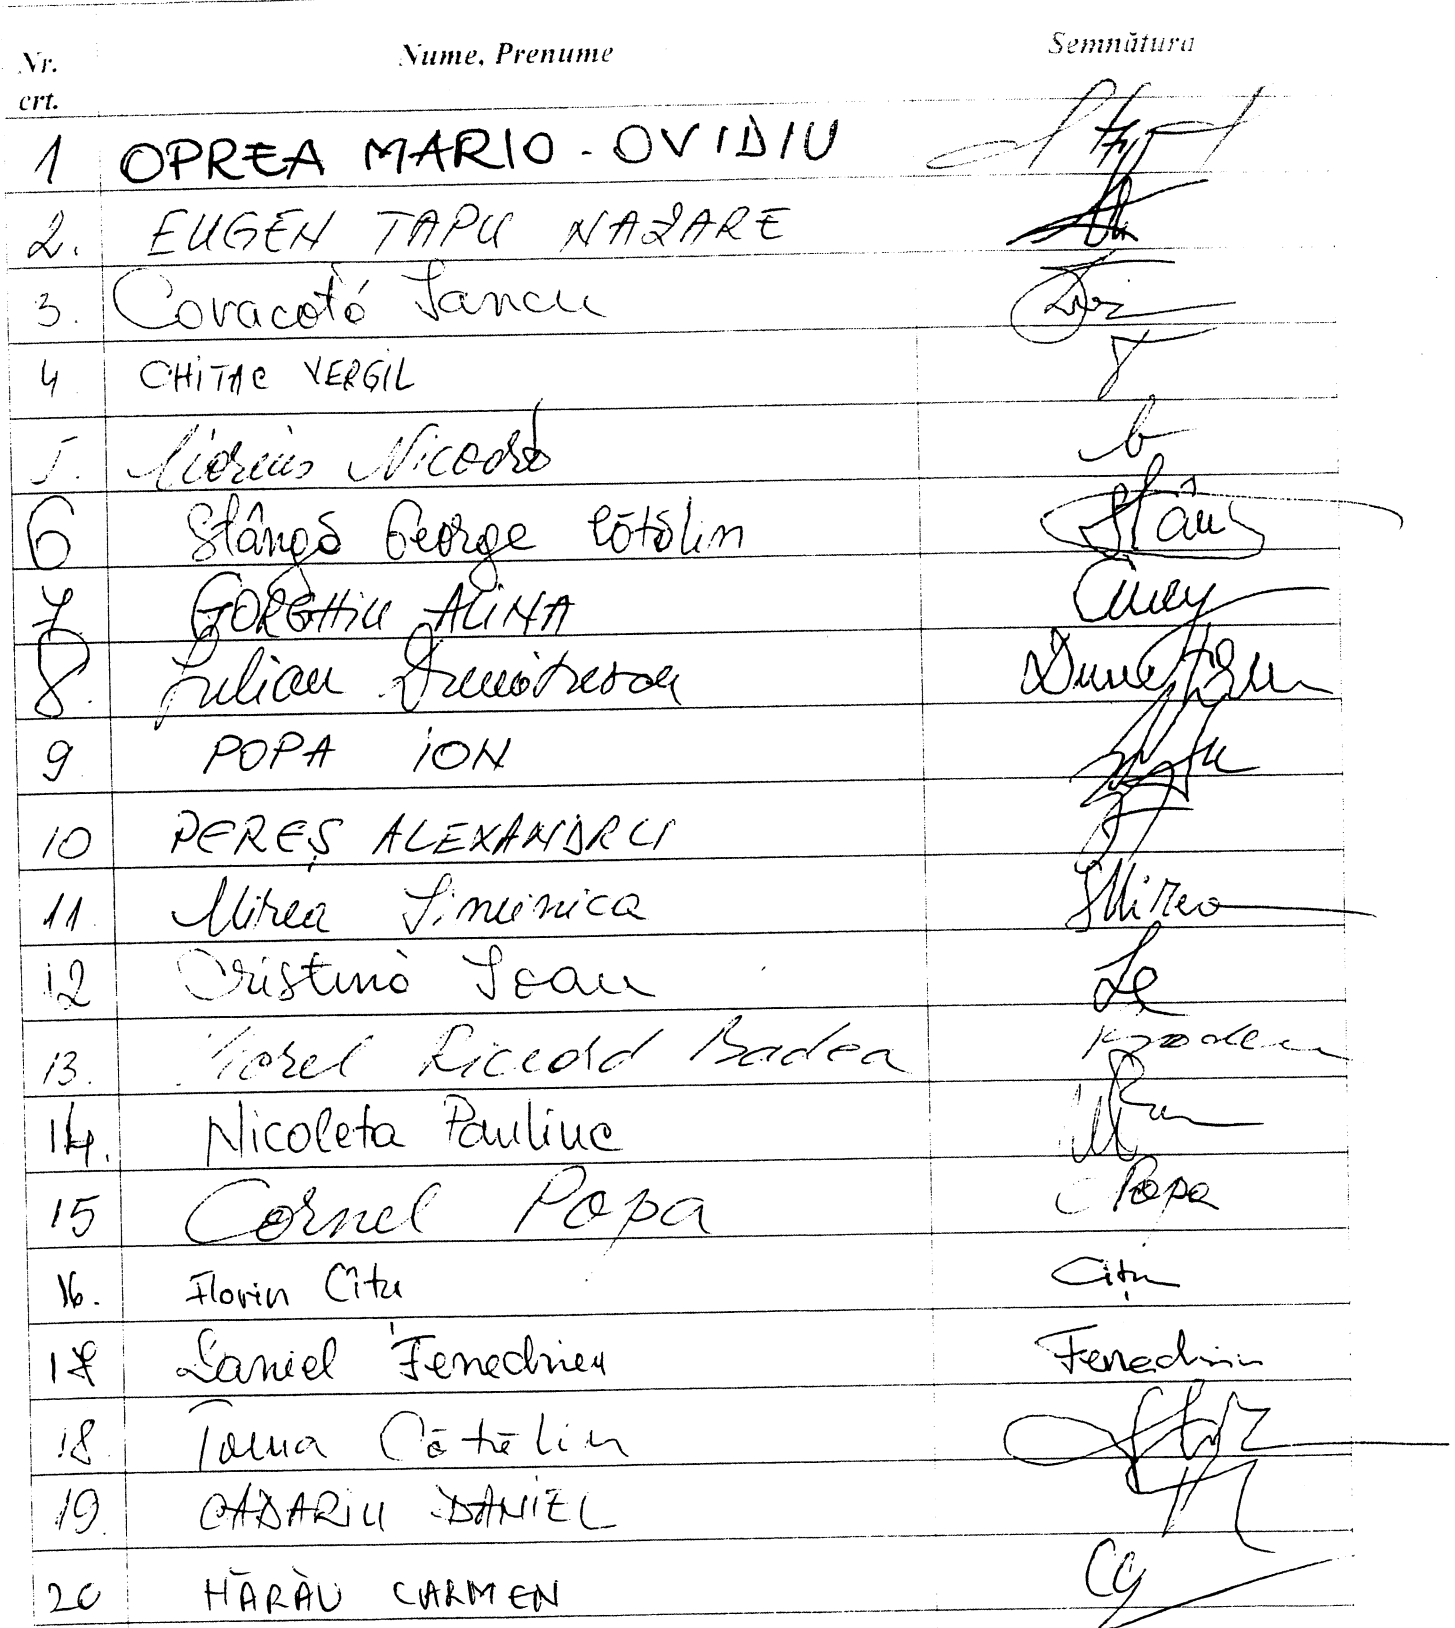 Nr. crt. Nume, Prenume Semnătura
1 OPREA MARIO-OVIDIU
2. EUGEN TAPU NAZARE
3. Covacotó Iancu
4 CHITAC VERGIL
5. Nicoară
6 Stângă George Cătălin Stân
7 GORGHIU ALINA
8. Iulian Dumitrescu
9 POPA ION
10 PEREȘ ALEXANDRU
11. Mirea Siminica SMirea
12 Cristina Ioan
13. Viorel Riceard Badea Badea
14. Nicoleta Pauliuc
15 Cornel Popa Popa
16. Florin Cîțu Cițu
17 Daniel Fenechiu Fenechiu
18. Toma Cătălin
19. CADARIU DANIEL
20 HĂRĂU CARMEN